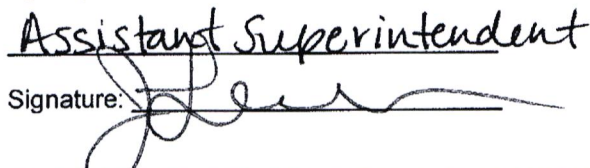 Assistant Superintendent
Signature: